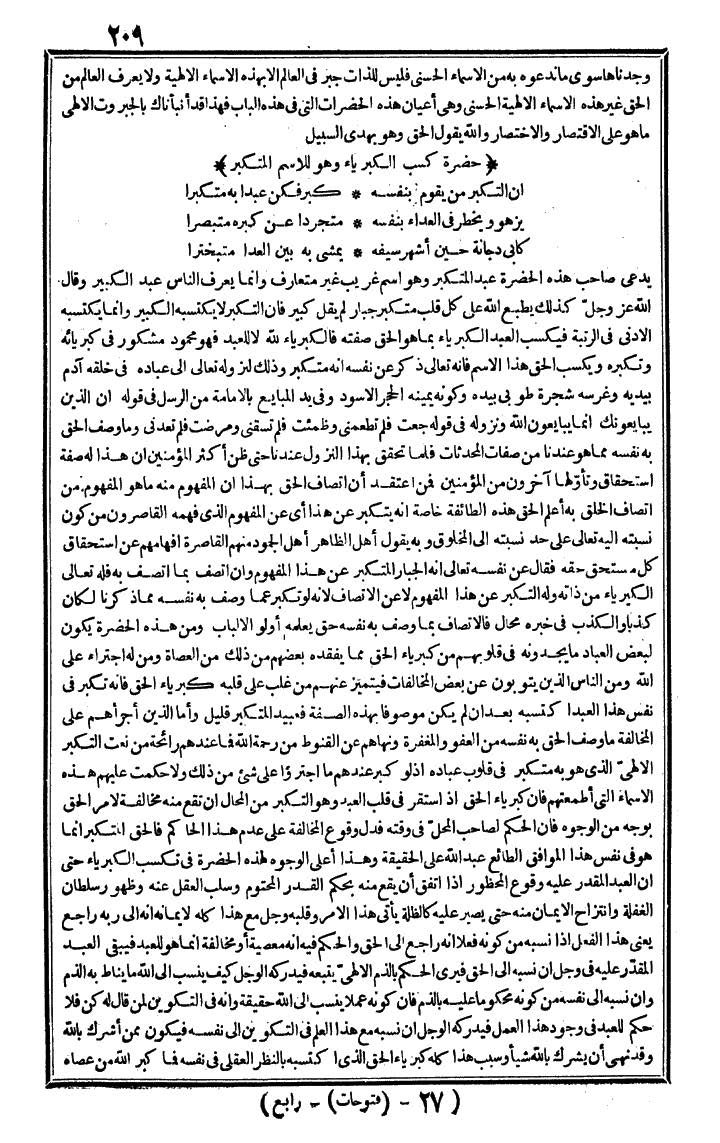 ٢٠٩
وجدناها سوى ماندعوه به من الاسماء الحسنى فليس للذات جبر فى العالم الا بهذه الاسماء الالهية ولا يعرف العالم من
الحق غير هذه الاسماء الالهية الحسنى وهى أعيان هذه الحضرات التى فى هذه الباب فهذا قد أنبأناك بالجبروت الالهى
ما هو على الاقتصار والاختصار والله يقول الحق وهو يهدى السبيل
﴿ حضرة كسب الكبرياء وهو للاسم المتكبر ﴾
ان التكبر من يقوم بنفسه * كبر فكن عبدا به متكبرا
يزهو ويخطر فى العداء بنفسه * متجردا عن كبره متبصرا
كابى دجانة حسين أشهر سيفه * يمشى به بين العدا متبخترا
يدعى صاحب هذه الحضرة عبد المتكبر وهو اسم غريب غير متعارف وانما يعرف الناس عبد الكبير وقال
الله عز وجل كذلك يطبع الله على كل قلب متكبر جبار لم يقل كبير فان التكبر لا يكتسبه الكبير وانما يكتسبه
الادنى فى الرتبة فيكسب العبد الكبرياء بما هو الحق صفته فالكبرياء لله لا للعبد فهو محمود مشكور فى كبريائه
وتكبره ويكسب الحق هذا الاسم فانه تعالى ذكر عن نفسه انه متكبر وذلك لنزوله تعالى الى عباده فى خلقه آدم
بيديه وغرسه شجرة طوبى بيده وكونه يمينه الحجر الاسود وفى يد المبايع بالامامة من الرسل فى قوله ان الذين
يبايعونك انما يبايعون الله ونزوله فى قوله جعت فلم تطعمنى وظمئت فلم تسقنى ومرضت فلم تعدنى وما وصف الحق
به نفسه مما هو عندنا من صفات المحدثات فلما تحقق بهذا النزول عندنا حتى ظن أكثر المؤمنين ان هذا له صفة
استحقاق وتأولها آخرون من المؤمنين فمن اعتقد أن اتصاف الحق بهذا ان المفهوم منه ما هو المفهوم من
اتصاف الخلق به أعلم الحق هذه الطائفة خاصة انه يتكبر عن هذا أى عن المفهوم الذى فهمه القاصرون من كون
نسبته اليه تعالى على حد نسبته الى المخلوق وبه يقول أهل الظاهر أهل الجمود منهم القاصرة افهامهم عن استحقاق
كل مستحق حقه فقال عن نفسه تعالى انه الجبار المتكبر عن هذا المفهوم وان اتصف بما اتصف به فله تعالى
الكبرياء من ذاته وله التكبر عن هذا المفهوم لا عن الاتصاف لانه لو تكبر عما وصف به نفسه مماذ كرنا لكان
كذبا والكذب فى خبره محال فالاتصاف بما وصف به نفسه حق يعلمه أولو الالباب ومن هذه الحضرة يكون
لبعض العباد ما يجدونه فى قلوبهم من كبرياء الحق مما يفقده بعضهم من ذلك من العصاة ومن له اجتراء على
الله ومن الناس الذين يتوبون عن بعض المخالفات فيتميز عنهم من غلب على قلبه كبرياء الحق فانه تكبر فى
نفس هذا العبد اكتسبه بعد ان لم يكن موصوفا بهذه الصفة فعبيد المتكبر قليل وأما الذين أجرأهم على
المخالفة ما وصف الحق به نفسه من العفو والمغفرة ونهاهم عن القنوط من رحمة الله فما عندهم رائحة من نعت التكبر
الالهى الذى هو به متكبر فى قلوب عباده اذ لو كبر عندهم ما اجترؤا على شئ من ذلك ولا حكمت عليهم هذه
الاسماء التى أطمعتهم فان كبرياء الحق اذ استقر فى قلب العبد وهو التكبر من المحال ان تقع منه مخالفة لامر الحق
بوجه من الوجوه فان الحكم لصاحب المحل فى وقته فدل وقوع المخالفة على عدم هذا الحاكم فالحق المتكبر انما
هو فى نفس هذا الموافق الطائع عبد الله على الحقيقة وهذا أعلى الوجوه لهذه الحضرة فى تكسب الكبرياء حتى
ان العبد المقدر عليه وقوع المحظور اذا اتفق أن يقع منه بحكم القدر المحتوم وسلب العقل عنه وظهور سلطان
الغفلة وانتزاح الايمان منه حتى يصير عليه كالظلة يأتى هذا الامر وقلبه وجل مع هذا كله لايمانه انه الى ربه راجع
يعنى هذا الفعل اذا نسبه من كونه فعلا انه راجع الى الحق والحكم فيه انه معصية أو مخالفة انما هو للعبد فيبقى العبد
المقدر عليه فى وجل ان نسبه الى الحق فيرى الحكم بالذم الالهى يتبعه فيدركه الوجل كيف ينسب الى الله ما يناط به الذم
وان نسبه الى نفسه من كونه محكوما عليه بالذم فان كونه عملا ينسب الى الله حقيقة وانه فى التكوين لمن قال له كن فلا
حكم للعبد فى وجود هذا العمل فيدركه الوجل ان نسبه مع هذا العلم فى التكوين الى نفسه فيكون ممن أشرك بالله
وقد نهى أن يشرك بالله شيأ وسبب هذا كله كبرياء الحق الذى اكتسبه بالنظر العقلى فى نفسه فما كبر الله من عصاه
( ٢٧ - (فتوحات) - رابع )